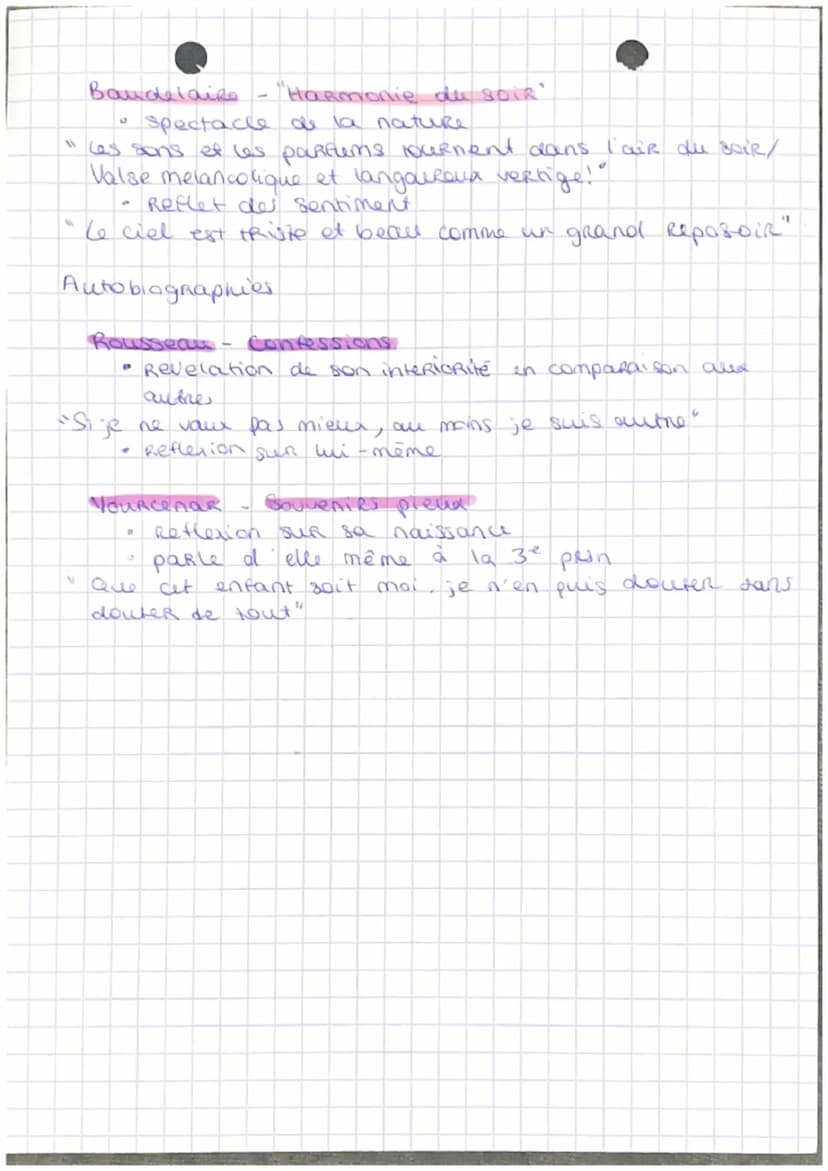 Baudelaire - "Harmonie du soir"
• spectacle de la nature
"Les sons et les parfums tournent dans l'air du soir/
Valse melancolique et langoureux vertige!"
- Reflet des sentiment
"Le ciel est triste et beau comme un grand reposoir"
Autobiographies
Rousseau - Confessions
• Revelation de son interiorité en comparaison aux
autres
"Si je ne vaux pas mieux, au moins je suis autre"
• Reflexion sur lui-même
Yourcenar - Souvenirs pieux
• Reflexion sur sa naissance
• parle d'elle même à la 3e prsn
"Que cet enfant soit moi, je n'en puis douter sans
douter de tout"